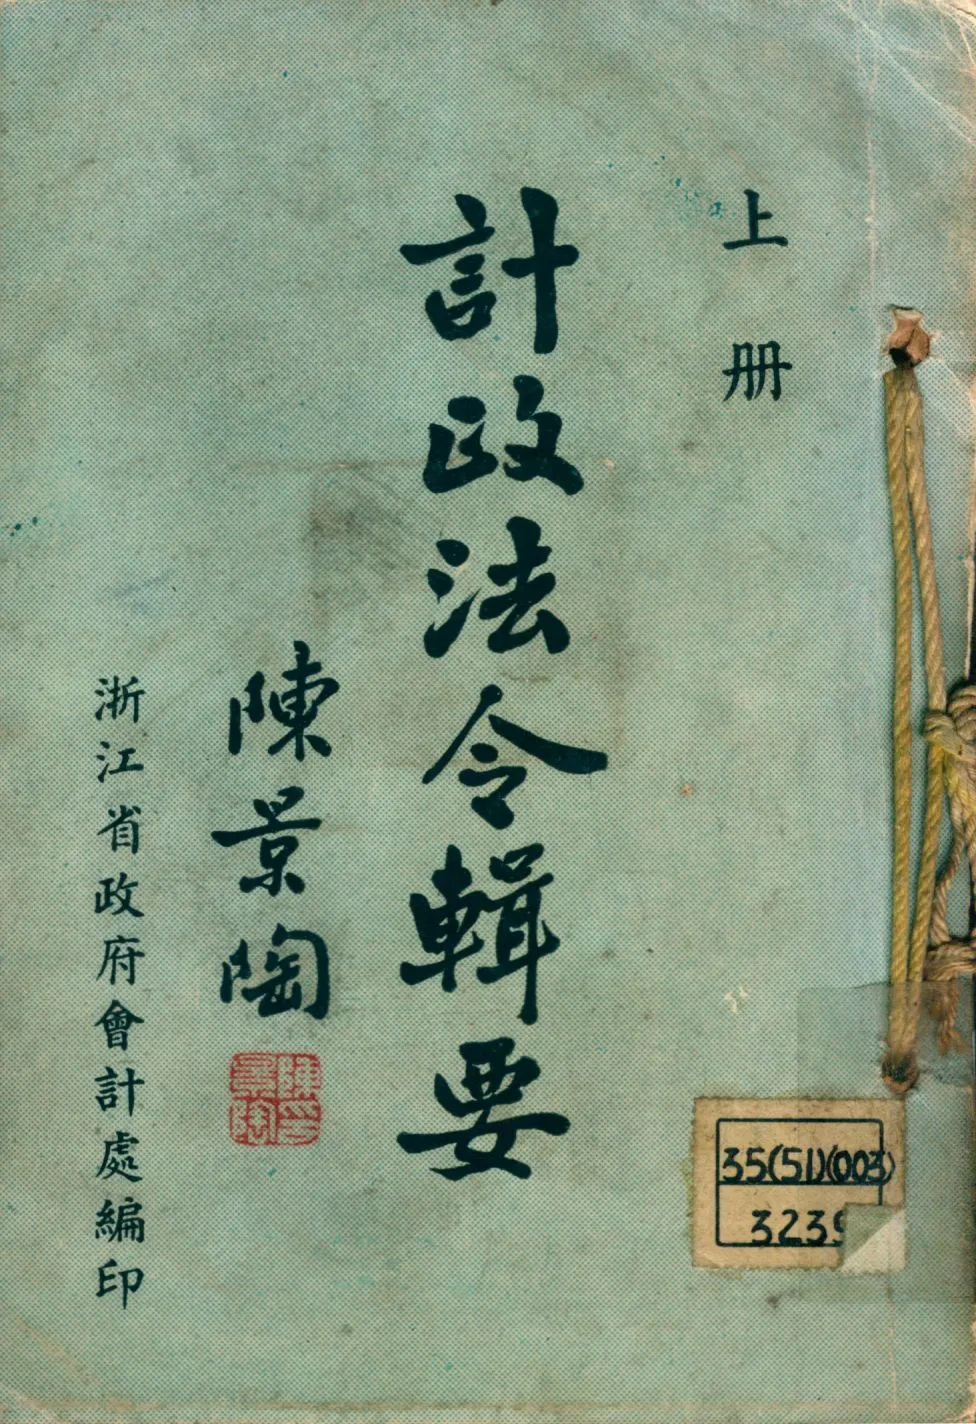 上册
計政法令輯要
陳景陶
陳景陶印
浙江省政府會計處編印
35(51)(003)
3239